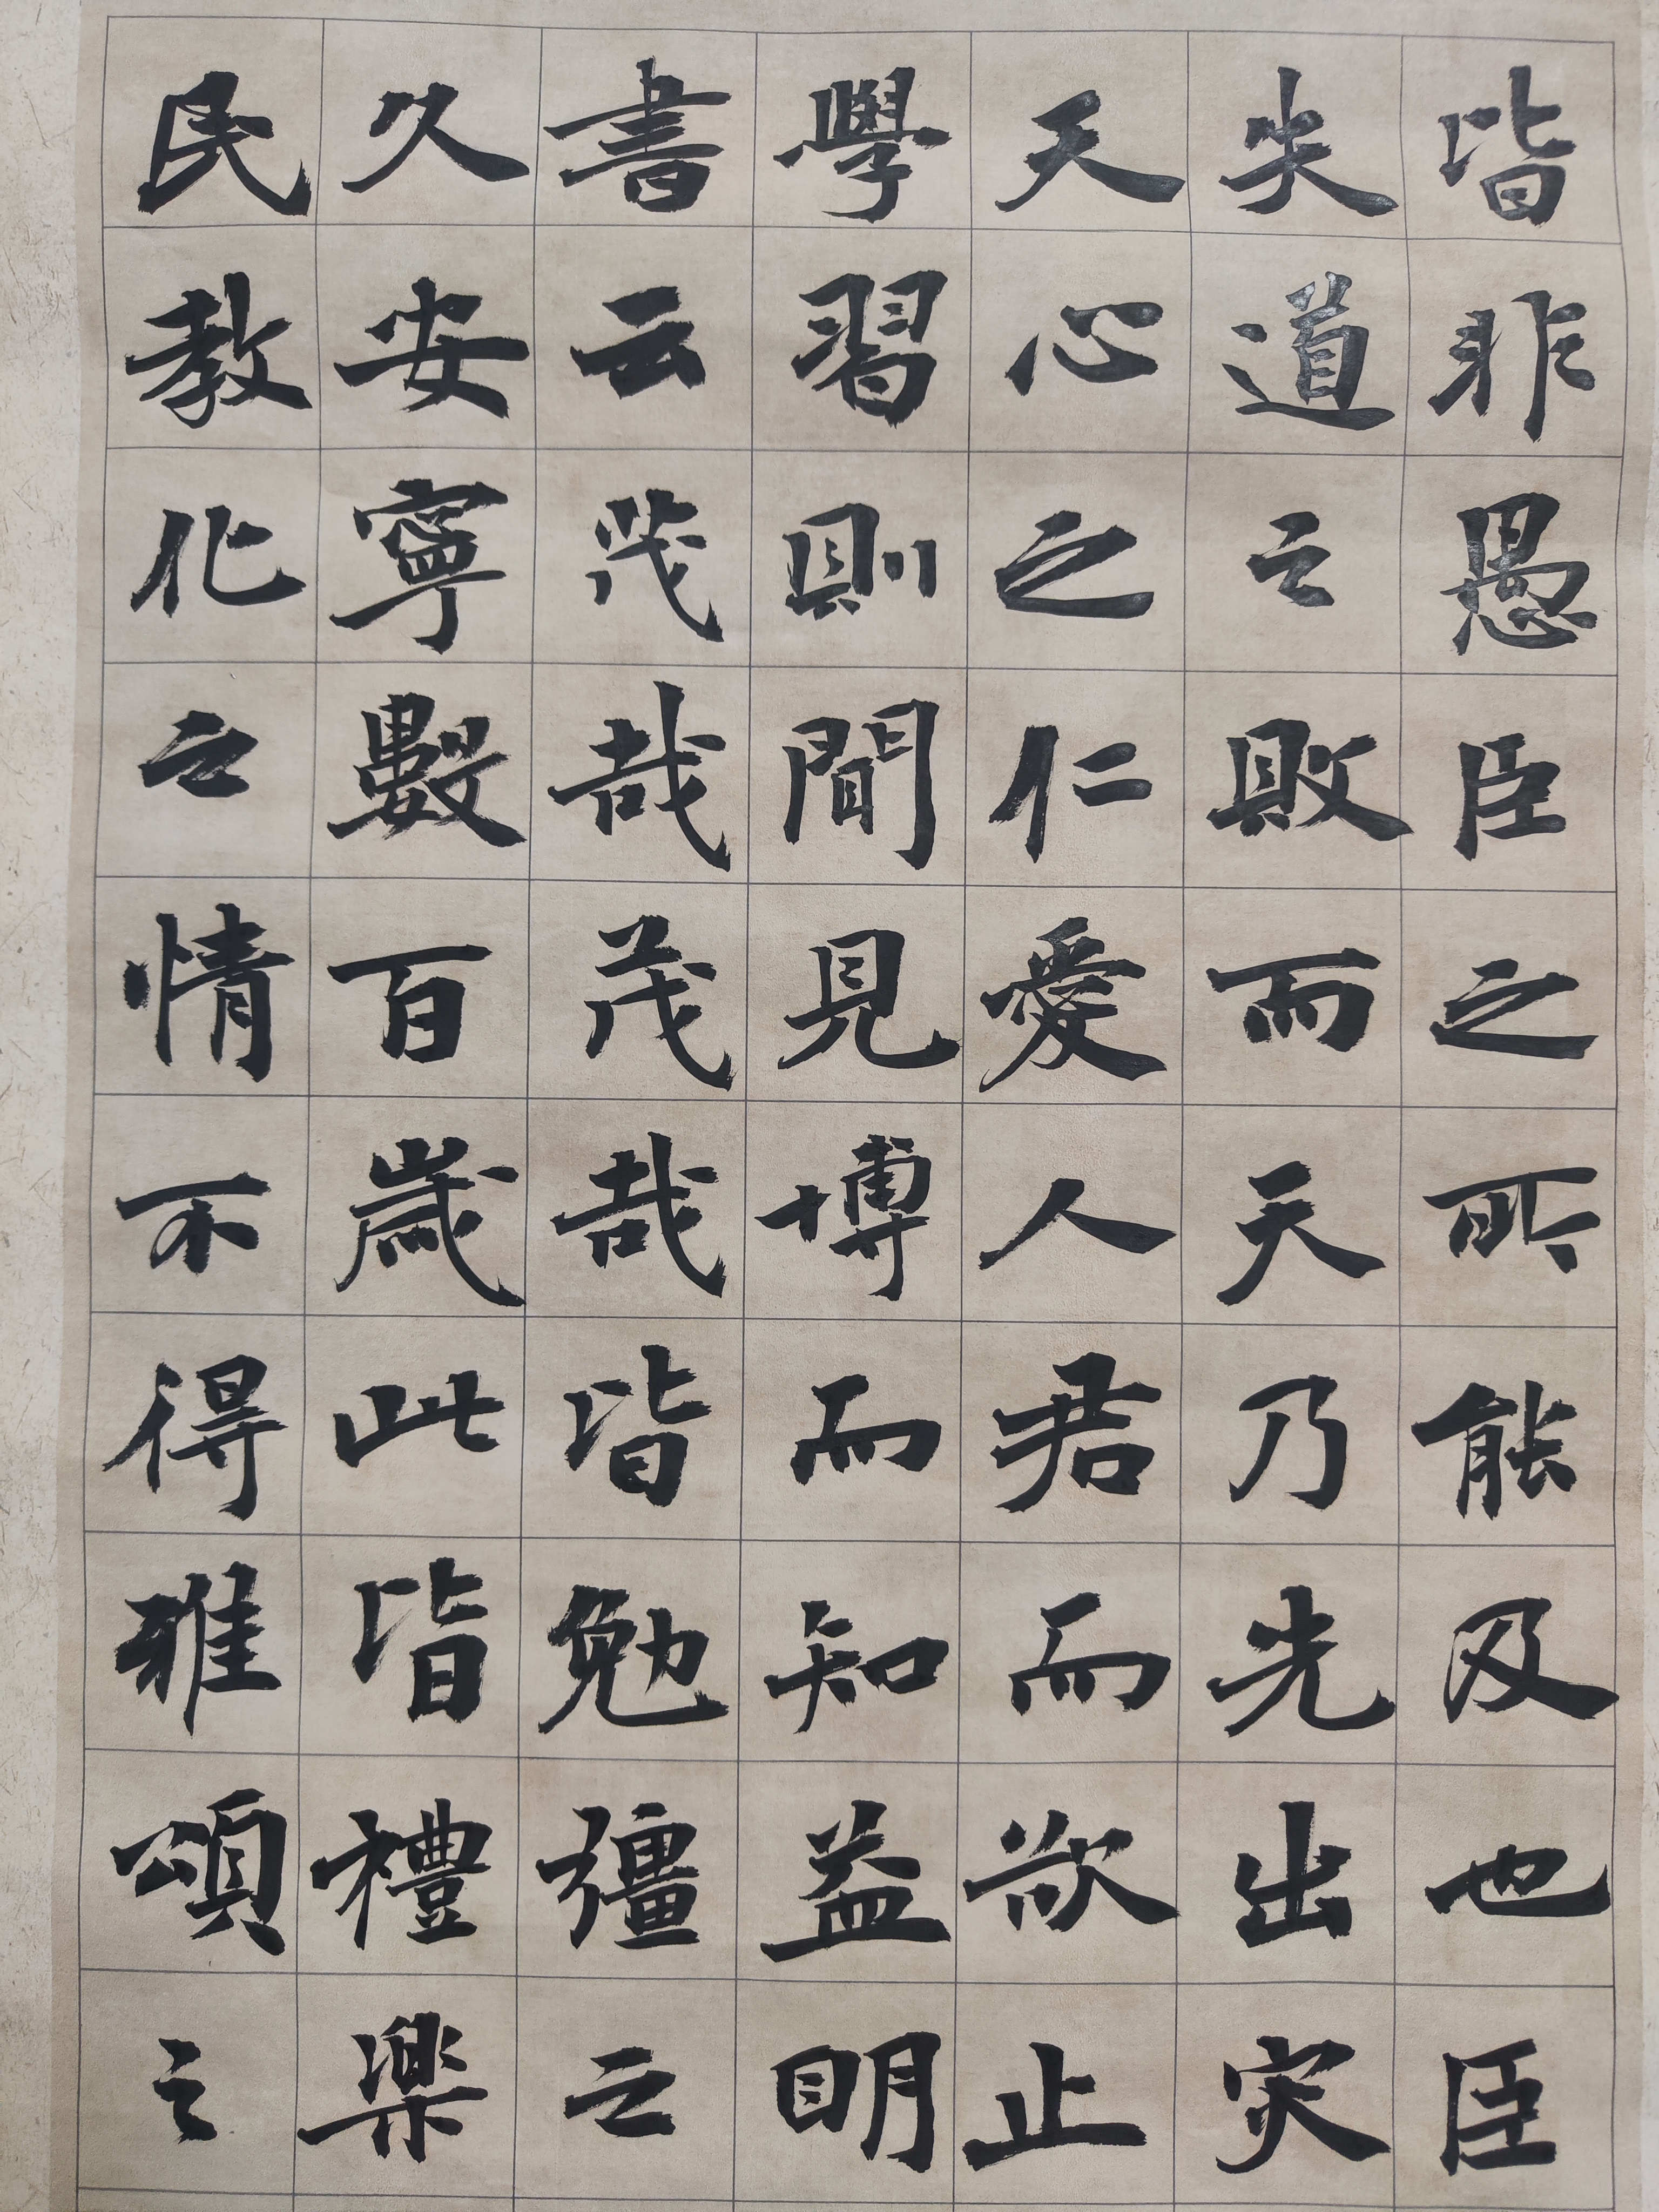 皆非愚臣之所能及也臣
失道之敗而天乃先出灾
天心之仁愛人君而欲止
學習則聞見博而知益明
書云茂哉茂哉皆勉彊之
久安寧數百歲此皆禮樂
民教化之情不得雅頌之